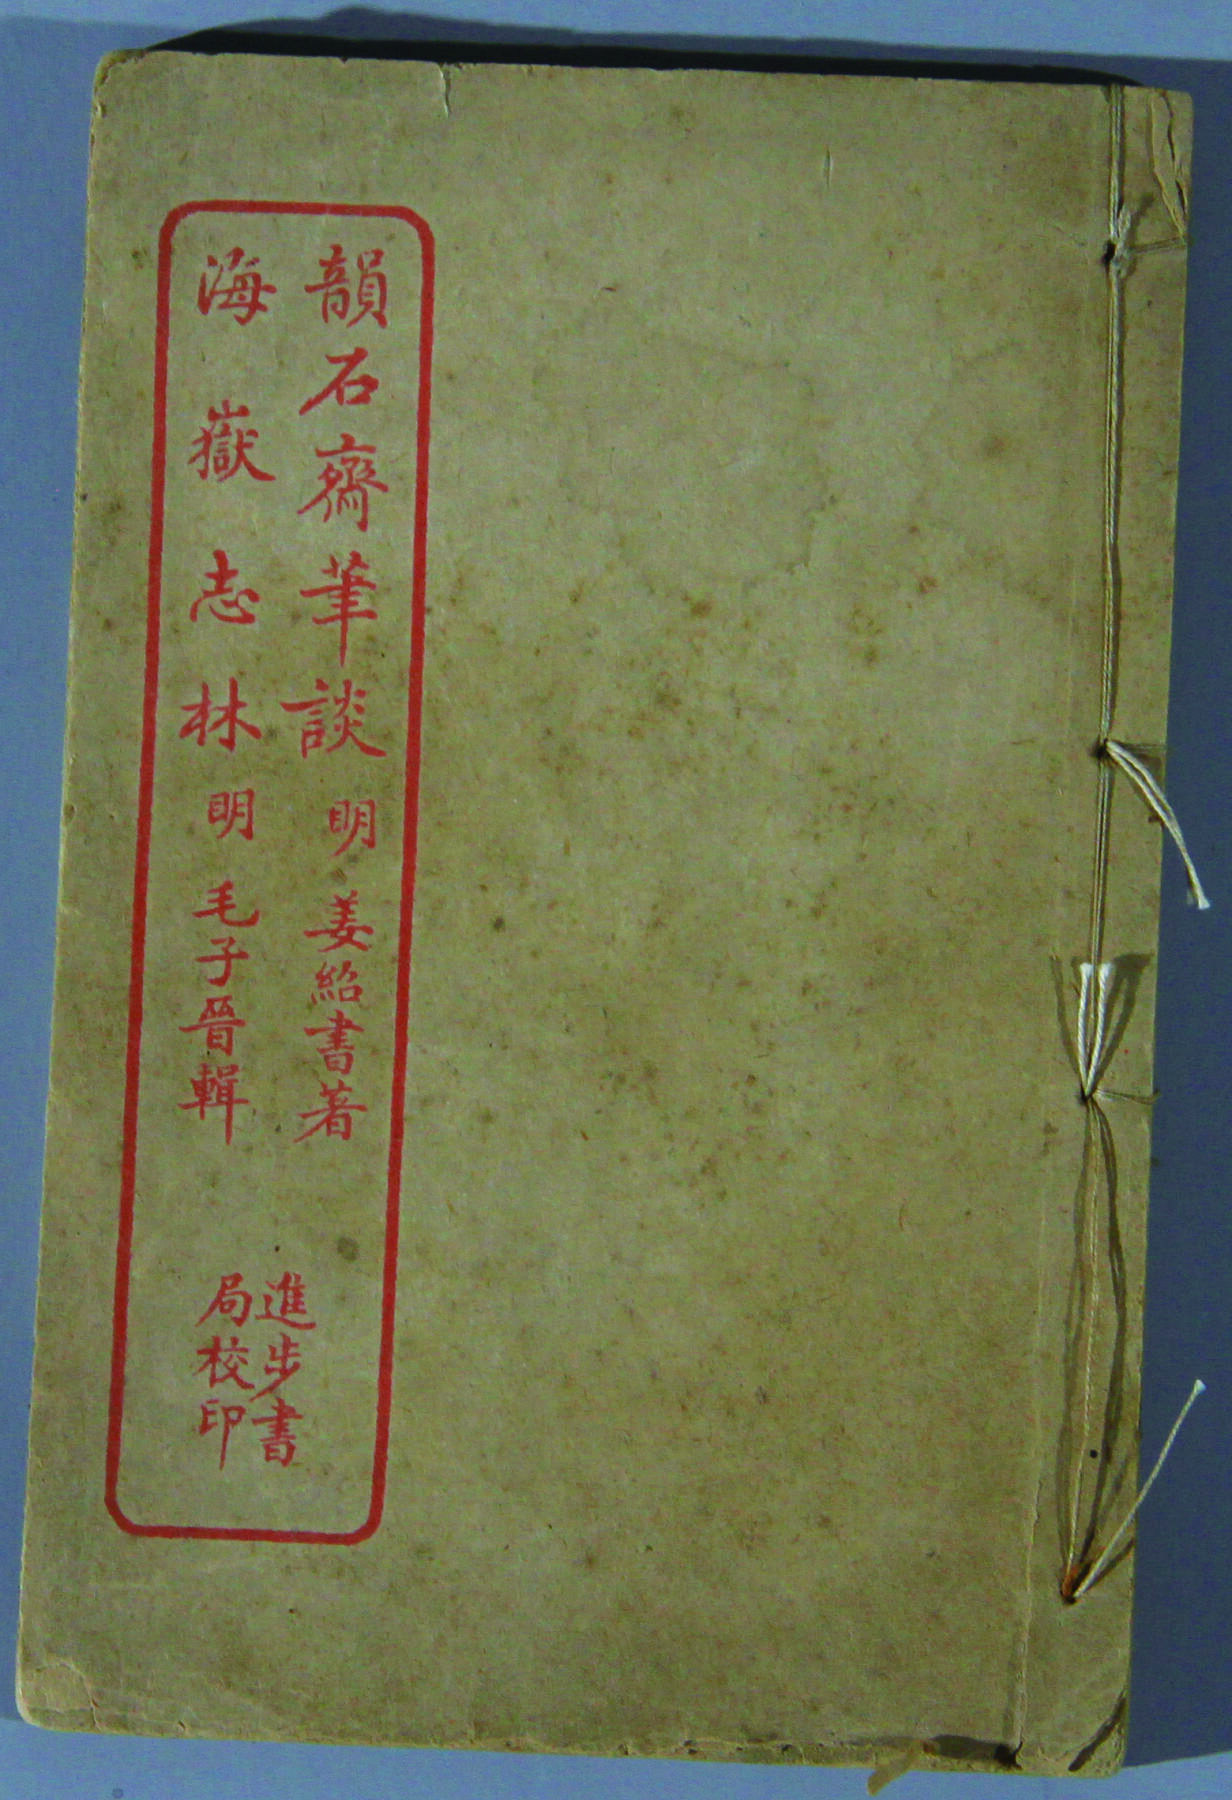 韻石齋筆談明姜紹書著
海嶽志林明毛子晉輯
進步書
局校印